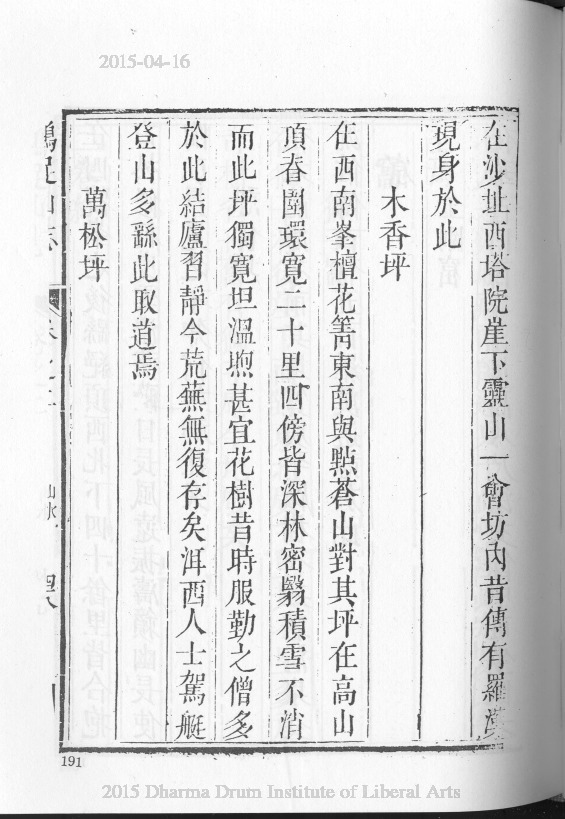 2015-04-16
在沙址西塔院崖下靈山一會坊內昔傳有羅漢
現身於此
木香坪
在西南峯檀花箐東南與點蒼山對其坪在高山
頂春圍環寬二十里四傍皆深林密翳積雪不消
而此坪獨寬坦溫煦甚宜花樹昔時服勤之僧多
於此結廬習靜今荒蕪無復存矣洱西人士駕艇
登山多繇此取道焉
萬松坪
山水
191
2015 Dharma Drum Institute of Liberal Arts